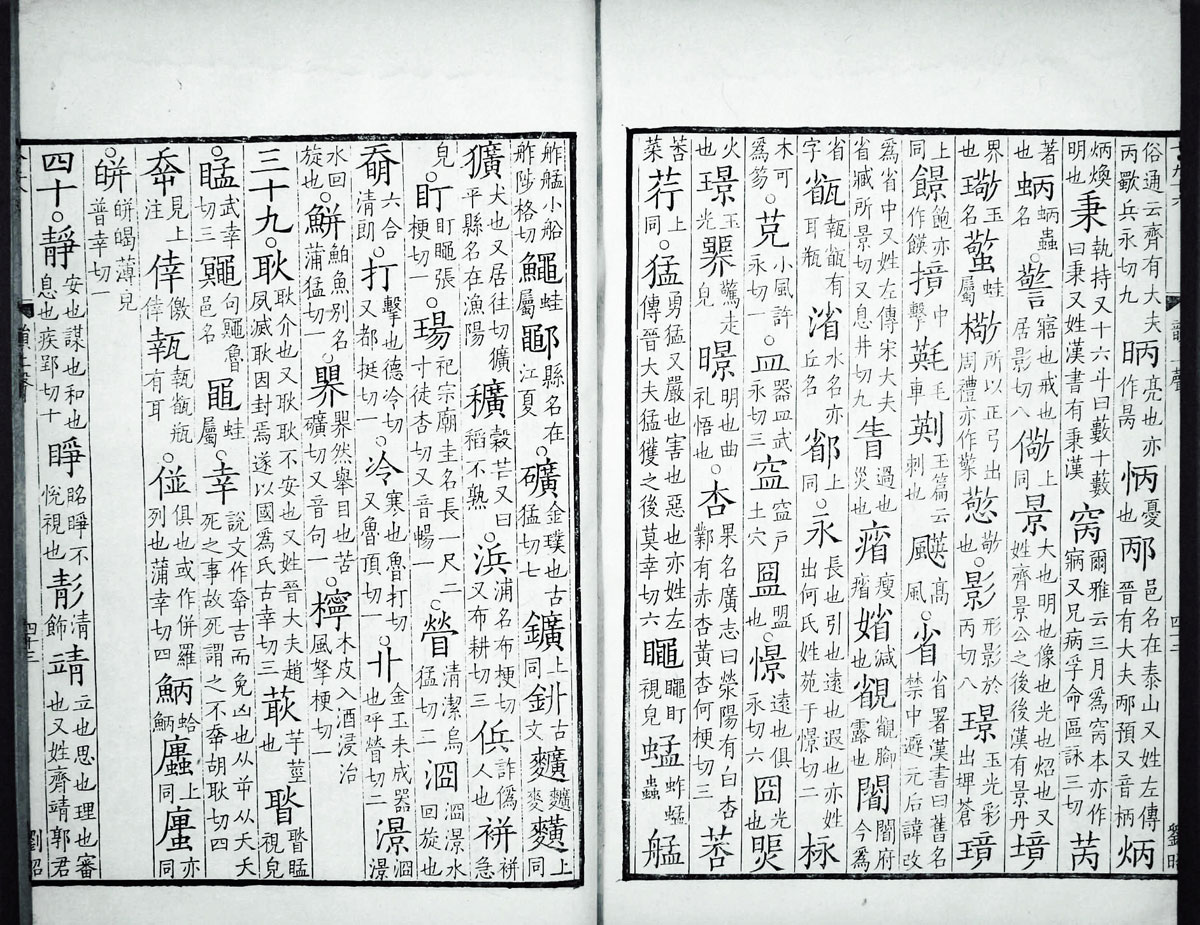 俗通云齊有大夫丙歜兵永切九昞亮也亦作昺怲憂也邴邑名在泰山又姓左傳晉有大夫邴預又音柄炳
炳煥明也秉執持又十六斗曰籔十籔曰秉又姓漢書有秉漢窉爾雅云三月爲窉本亦作寎又兄病孚命區詠三切苪
著也蛃蛃蟲名○警寤也戒也居影切八儆上同景大也明也像也光也炤也又姓齊景公之後後漢有景丹境
界也璥玉名蟼蛙屬㯳所以正弓出周禮亦作檠憼敬也○影形影於丙切八璟玉光彩出埤蒼璄
上同飽亦作中擊毛車玉篇云刺也高風○省省署漢書曰舊名禁中避元后諱改
爲省中又姓左傳宋大夫省臧所景切又息井切九眚過也災也瘦㛮減也露也府今爲
字瓶有耳瓶渻水名亦丘名上同○永長也引也遠也遐也亦姓出何氏姓苑于憬切二栐
木可爲笏○小風許永切一○皿器皿武永切三土穴盟也○憬遠也俱永切六囧光煚
火也璟玉光臩驚走皃暻明也曲礼悟也○杏果名廣志曰滎陽有白杏鄴有赤杏黃杏何梗切三莕
莕菜荇上同○猛勇猛又嚴也害也惡也亦姓左傳晉大夫猛獲之後莫幸切六盯視皃蜢蚱蜢蟲艋
舴艋小船舴陟格切鼆蛙屬鄳縣名在江夏○礦金璞也古猛切七鑛上同古文麥上同
獷犬也又居往切獷平縣名在漁陽穬穀芒又曰稻不熟○浜浦名布梗切又布耕切三詐僞人也急
皃○盯張梗切一○瑒祀宗廟圭名長一尺二寸徒杏切又音暢一○清潔烏猛切二水回旋也
六合清朗○打擊也德冷切又都挺切一○冷寒也魯打切又魯頂切一○卝金玉未成器也呼切二
水回旋也○鮩鮊魚別名蒲猛切一○然舉目也苦礦切又音句一○檸木皮入酒浸治風拏梗切一
三十九○耿耿介也又耿耿不安也又姓晉大夫趙夙滅耿因封焉遂以國爲氏古幸切三芋莖也視皃
○武幸切三句鄳魯邑名黽蛙屬○幸說文作㚔吉而免凶也从屰从夭夭死之事故死謂之不㚔胡耿切四
㚔見上注倖儌倖瓶有耳○俱也或作併羅列也蒲幸切四蛤上同亦同
○皏皏薄皃普幸切一
四十○靜安也謀也和也息也疾郢切十睜睜不悅視也清飾靖立也思也理也審也又姓齊靖郭君
四十三
劉昭